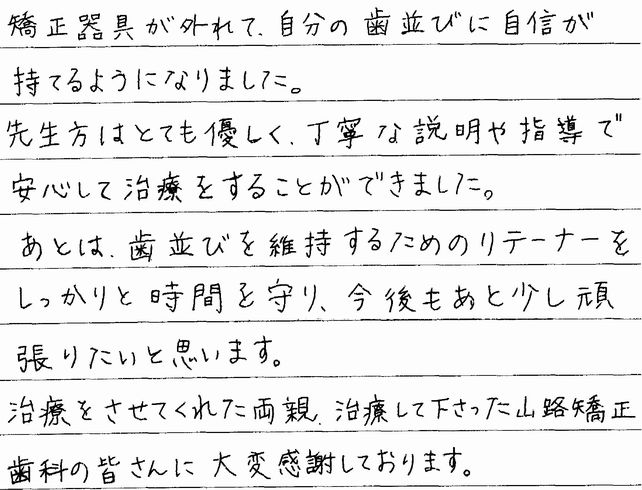 矯正器具が外れて、自分の歯並びに自信が
持てるようになりました。
先生方はとても優しく、丁寧な説明や指導で
安心して治療をすることができました。
あとは、歯並びを維持するためのリテーナーを
しっかりと時間を守り、今後もあと少し頑
張りたいと思います。
治療をさせてくれた両親、治療して下さった山路矯正
歯科の皆さんに大変感謝しております。